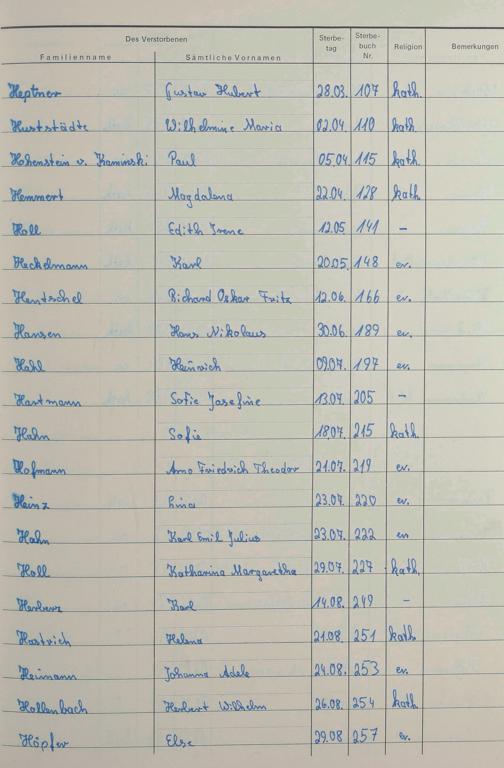 Des Verstorbenen Sterbe- tag Sterbe- buch Nr. Religion Bemerkungen
Familienname Sämtliche Vornamen
Heptner Gustav Hubert 28.03. 107 kath.
Huststädte Wilhelmine Maria 02.04. 110 kath.
Hohenstein v. Kaminski Paul 05.04 115 kath.
Hemmert Magdalena 22.04. 128 kath.
Holl Edith Irene 12.05 141 –
Heckelmann Karl 20.05. 148 ev.
Hentschel Richard Oskar Fritz 12.06. 166 ev.
Hansen Hans Nikolaus 30.06. 189 ev.
Hahl Heinrich 09.07. 197 ev.
Hartmann Sofie Josefine 13.07. 205 –
Hahn Sofie 18.07. 215 kath.
Hofmann Arno Friedrich Theodor 21.07. 219 ev.
Heinz Lina 23.07. 220 ev.
Hahn Karl Emil Julius 23.07. 222 ev
Holl Katharina Margaretha 29.07. 227 kath.
Herberz Karl 14.08. 249 –
Hastrich Helena 21.08. 251 kath.
Heimann Johanna Adele 24.08. 253 ev.
Hollenbach Herbert Wilhelm 26.08. 254 kath.
Höpfer Else 29.08 257 ev.